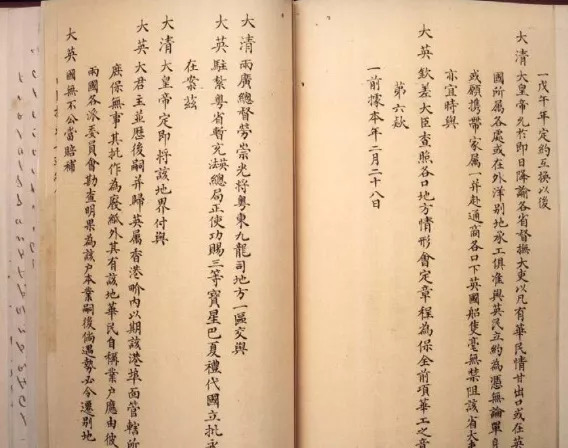 一戊午年定約互換以後
大清大皇帝允於即日降諭各省督撫大吏以凡有華民情甘出口或在英
國所屬各處或在外洋別地承工俱准與英民立約為憑無論單身
或願攜帶家屬一并赴通商各口下英國船隻毫無禁阻該省大吏
亦宜時與
大英欽差大臣查照各口地方情形會定章程為保全前項華工之意
第六款
一前據本年二月二十八日
大清兩廣總督勞崇光將粵東九龍司地方一區交與
大英駐紮粵省暫充英法總局正使功賜三等寶星巴夏禮代國立批永
在案茲
大清大皇帝定即將該地界付與
大英大君主並歷後嗣并歸英屬香港畍內以期該港埠面管轄所
庶保無事其批作為廢紙外其有該地華民自稱業戶應由彼
兩國各派委員會勘查明果為該戶本業嗣後倘遇勢必令遷別地
大英國無不公當賠補